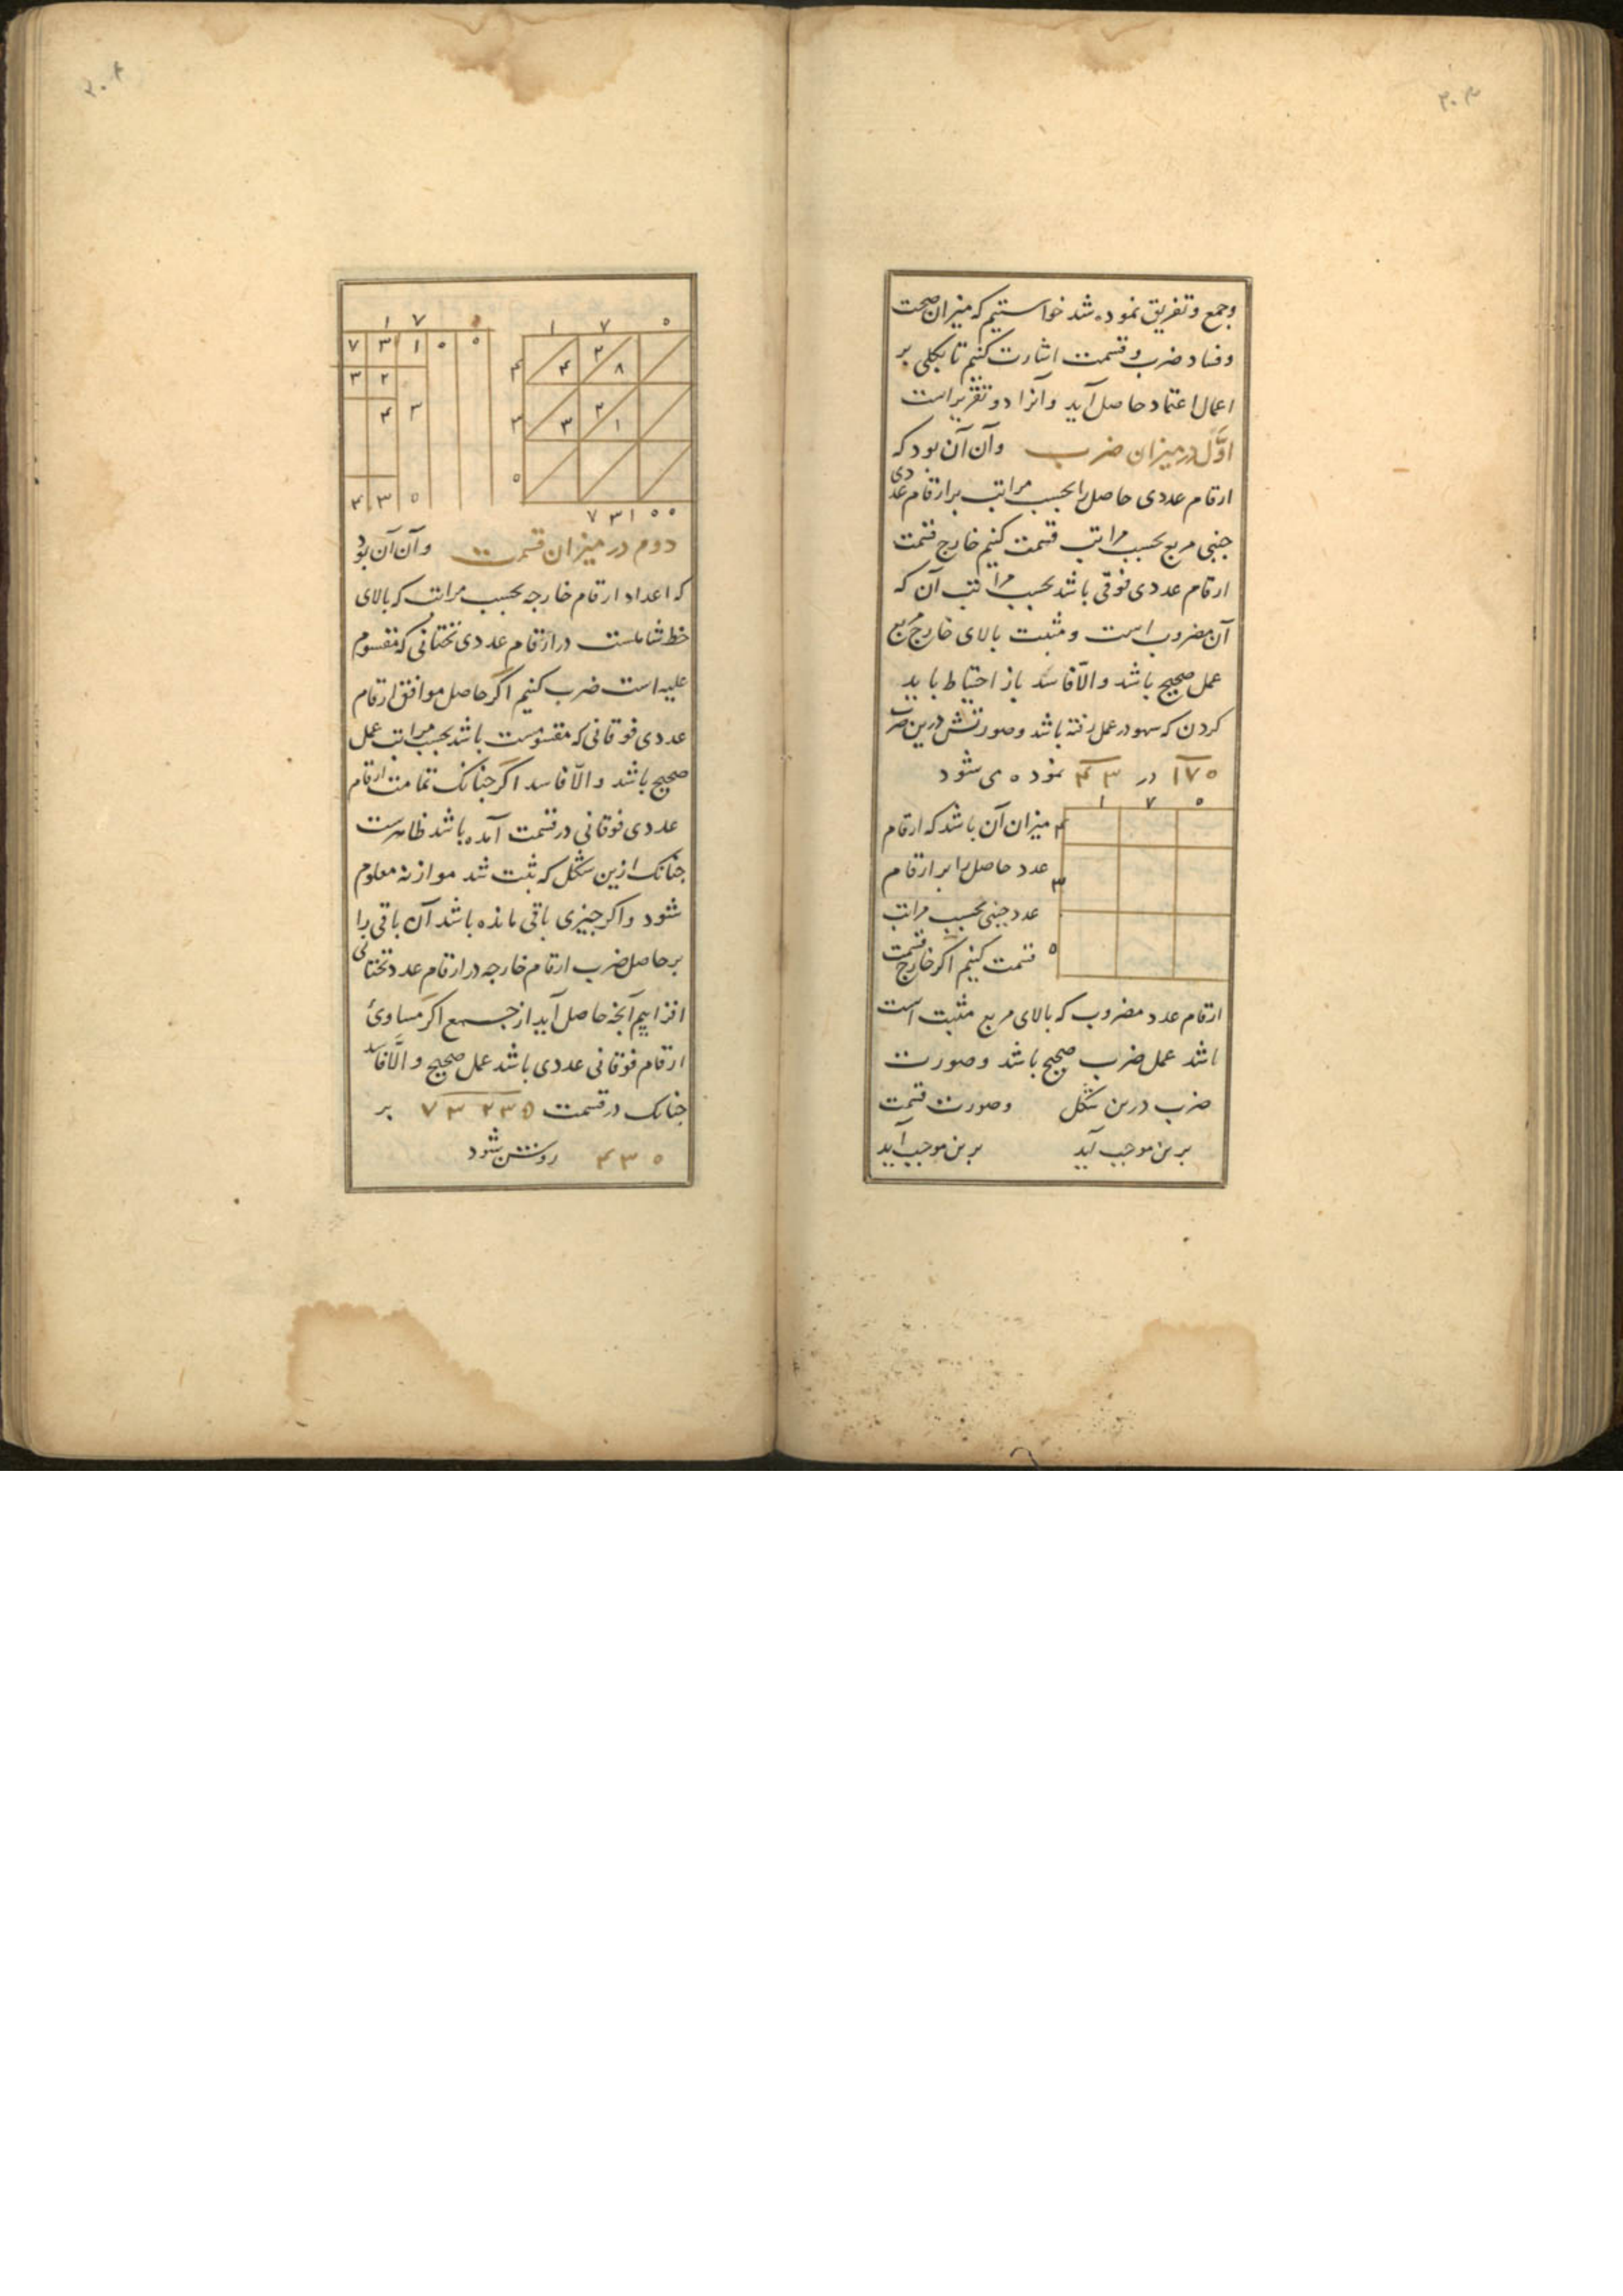 ۳۰۳
وجمع وتفریق نموده شد خواستیم که میزان صحت
وفساد ضرب وقسمت اشارت کنیم تا بکلی بر
اعمال اعتماد حاصل آید وآنرا دو تقریر است
اوّل در میزان ضرب وآن آن بود که
ارقام عددی حاصل را بحسب مراتب بر ارقام عددی
جنبی مربع بحسب مراتب قسمت کنیم خارج قسمت
ارقام عددی فوقی باشد بحسب مراتب آن که
آن مضروب است ومثبت بالای خارج مربع
عمل صحیح باشد والّا فاسد باز احتیاط باید
کردن که سهو در عمل رفته باشد وصورتش درین ضرب
۱۷۵ در ۴۳ نموده می شود
۱ ۷ ۵
میزان آن باشد که ارقام ۴
عدد حاصل را بر ارقام ۳
عدد جنبی بحسب مراتب
قسمت کنیم اکر خارج قسمت ۵
ارقام عدد مضروب که بالای مربع مثبت است
باشد عمل ضرب صحیح باشد وصورت
ضرب درین شکل وصورت قسمت
برین موجب آید برین موجب آید
۳۰۴
۱ ۷ ۵
۴ ۴ ۲ ۸
۳ ۳ ۲ ۱
۵
۷ ۳ ۱ ۵ ۵
۱ ۷
۷ ۳ ۱ ۵ ۵
۳ ۲
۴ ۳
۴ ۳ ۵
دوم در میزان قسمت وآن آن بود
که اعداد ارقام خارجه بحسب مراتب که بالای
خط شاملست در ارقام عددی تحتانی که مقسوم
علیه است ضرب کنیم اکر حاصل موافق ارقام
عددی فوقانی که مقسومست باشد بحسب مراتب عمل
صحیح باشد والّا فاسد اکر جنانک تمامت ارقام
عددی فوقانی در قسمت آمده باشد ظاهرست
جنانک ازین شکل که ثبت شد موازنه معلوم
شود واکر جیزی باقی مانده باشد آن باقی را
بر حاصل ضرب ارقام خارجه در ارقام عدد تحتانی
افزاییم آنجه حاصل آید از جمع اکر مساوئ
ارقام فوقانی عددی باشد عمل صحیح والّا فاسد
جنانک در قسمت ۷۳۲۳۵ بر
۴۳۵ روشن شود